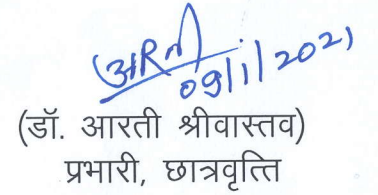 आरती
09/1/2021
(डॉ. आरती श्रीवास्तव)
प्रभारी, छात्रवृत्ति